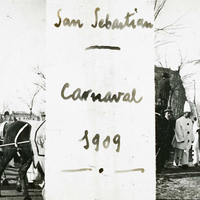 San Sebastian
Carnaval
1909